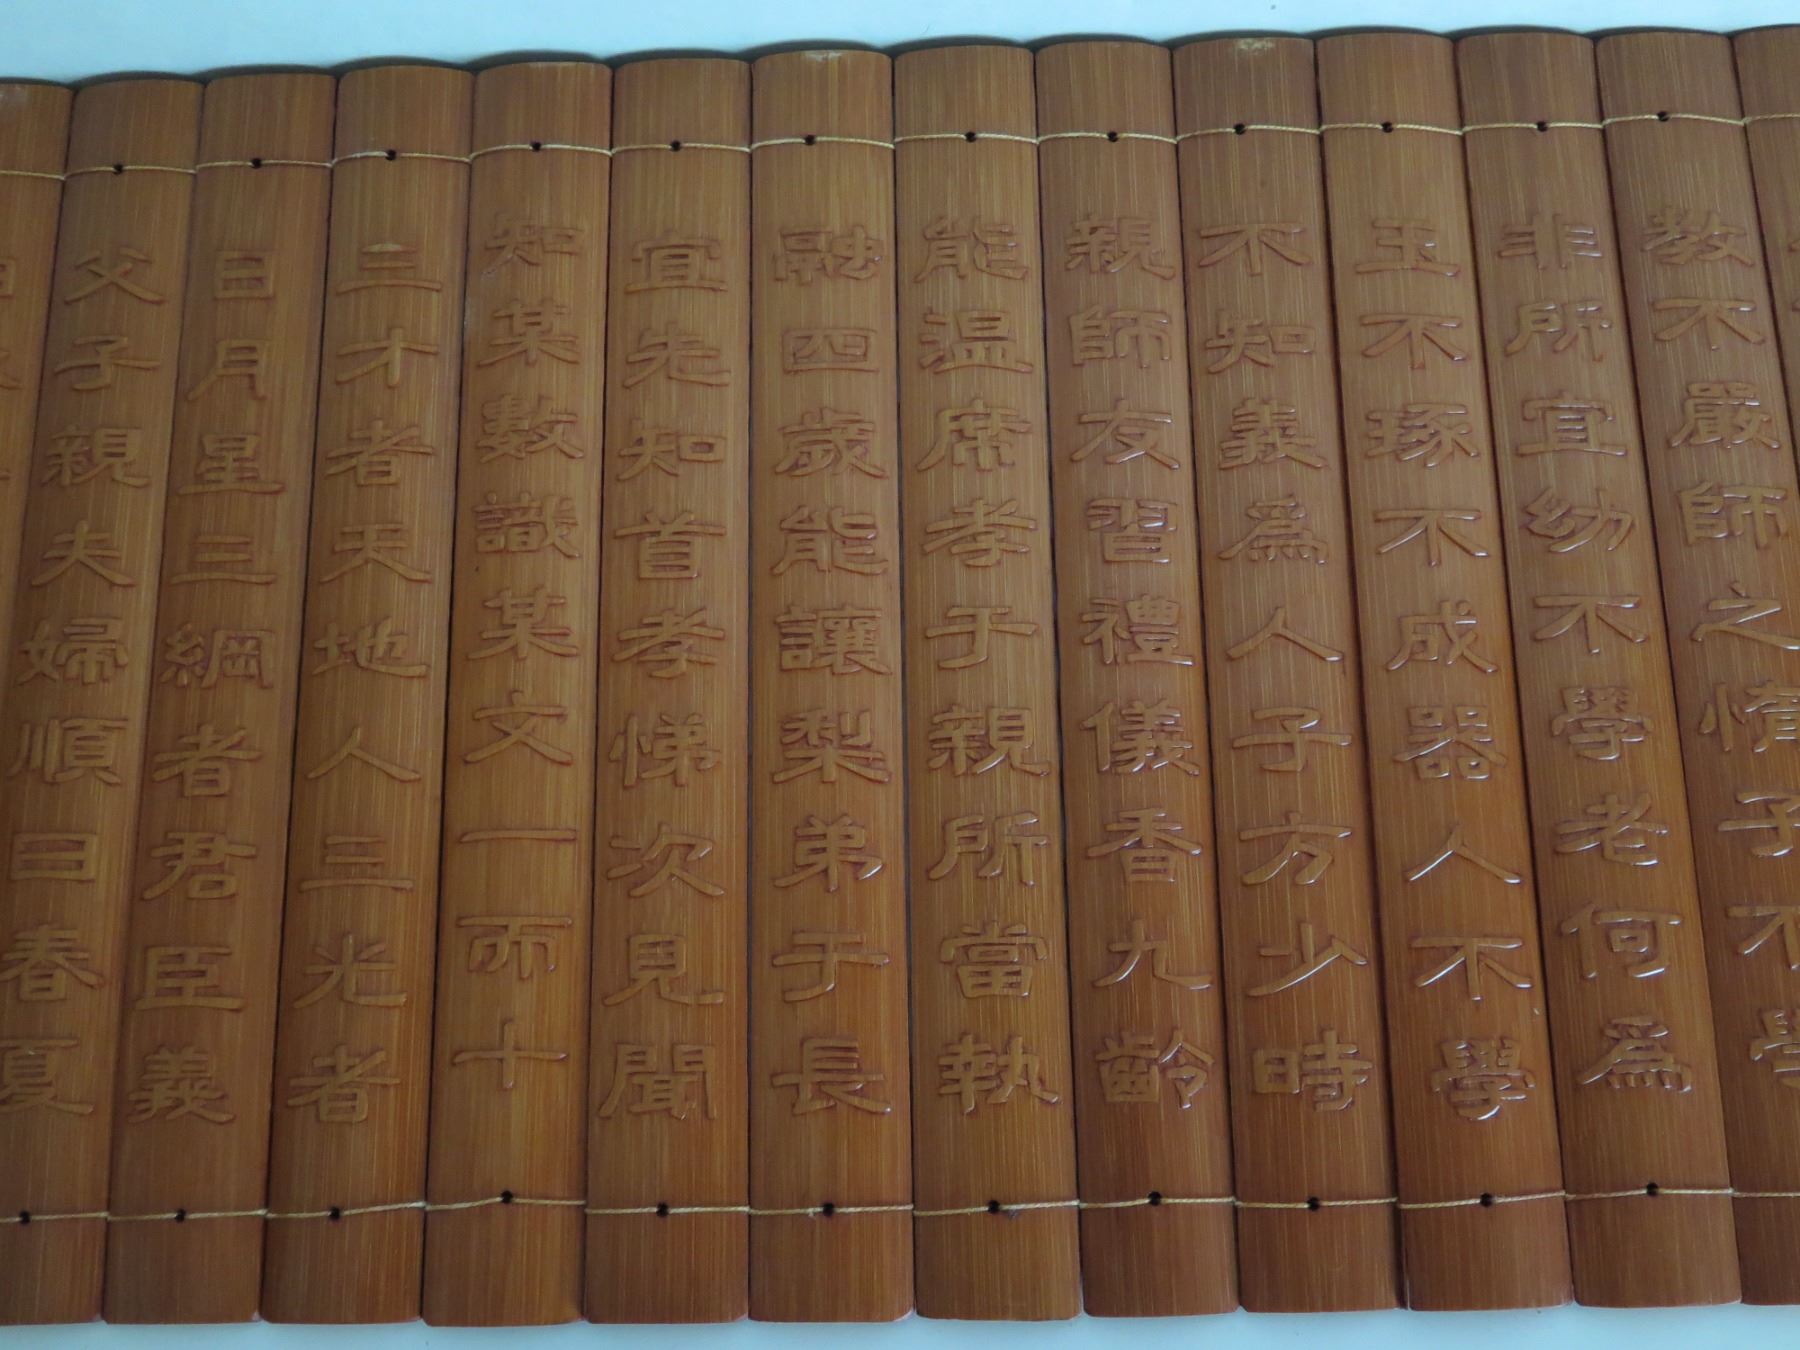 教不嚴師之惰子不學
非所宜幼不學老何爲
玉不琢不成器人不學
不知義爲人子方少時
親師友習禮儀香九齡
能温席孝于親所當執
融四歲能讓梨弟于長
宜先知首孝悌次見聞
知某數識某文一而十
三才者天地人三光者
日月星三綱者君臣義
父子親夫婦順曰春夏